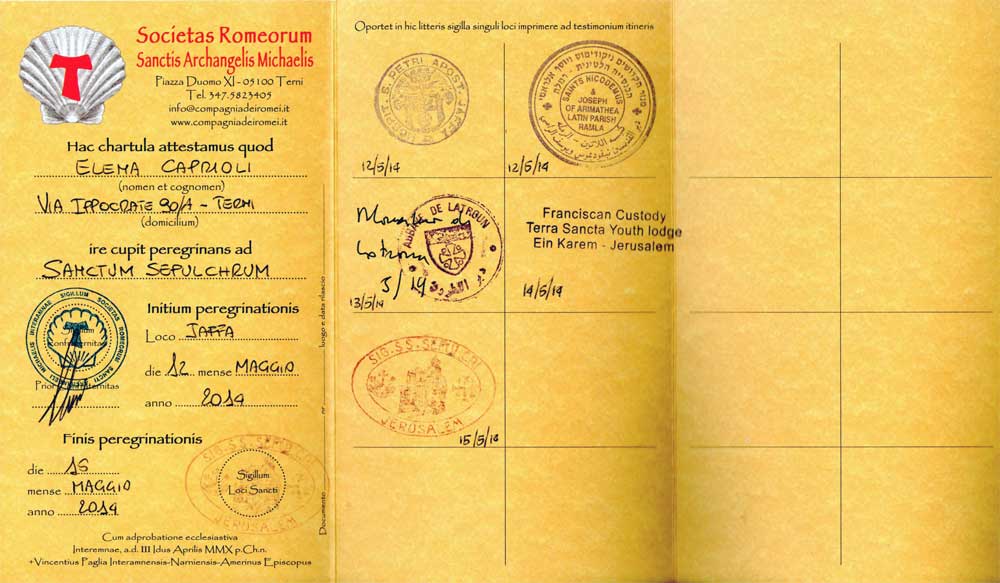 Societas Romeorum
Sanctis Archangelis Michaelis
Piazza Duomo XI - 05100 Terni
Tel. 347.5823405
info@compagniadeiromei.it
www.compagniadeiromei.it
Hac chartula attestamus quod
ELENA CAPRIOLI
(nomen et cognomen)
VIA IPPOCRATE 90/A - TERNI
(domicilium)
ire cupit peregrinans ad
SANCTUM SEPULCHRUM
Initium peregrinationis
Loco JAFFA
die 12 mense MAGGIO
anno 2014
Finis peregrinationis
die 15
mense MAGGIO
anno 2014
Sigillum
Loci Sancti
SIG. S.S. SEPULCRI
JERUSALEM
Cum adprobatione ecclesiastiva
Interemnae, a.d. III Idus Aprilis MMX p.Ch.n.
+Vincentius Paglia Interamnensis-Narniensis-Amerinus Episcopus
Documento nr luogo e data rilascio
Oportet in hic litteris sigilla singuli loci imprimere ad testimonium itineris
S. PETRI APOST. JAFFA
12/5/14
SAINTS NICODEMUS
&
JOSEPH
OF ARIMATHEA
LATIN PARISH
RAMLA
12/5/14
ABBAYE DE LATROUN
5/14
13/5/14
Franciscan Custody
Terra Sancta Youth lodge
Ein Karem - Jerusalem
14/5/14
SIG. S.S. SEPULCRI
JERUSALEM
15/5/14